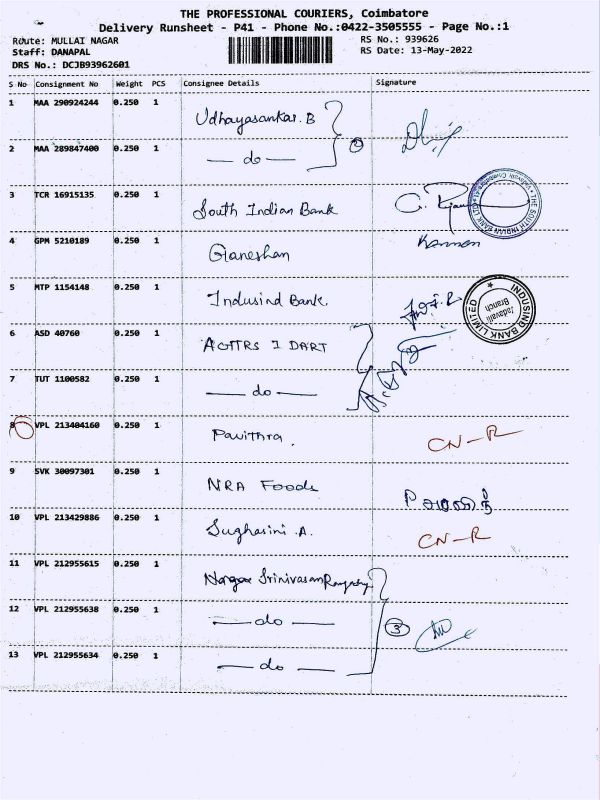 THE PROFESSIONAL COURIERS, Coimbatore
Delivery Runsheet - P41 - Phone No.:0422-3505555 - Page No.:1
Route: MULLAI NAGAR RS No.: 939626
Staff: DANAPAL RS Date: 13-May-2022
DRS No.: DCJB93962601
S No Consignment No Weight PCS Consignee Details Signature
1 MAA 290924244 0.250 1 Udhayasankar. B
2 MAA 289847400 0.250 1 — do —
3 TCR 16915135 0.250 1 South Indian Bank
4 GPM 5210189 0.250 1 Ganeshan Kannan
5 MTP 1154148 0.250 1 Indusind Bank
INDUSIND BANK LIMITED
Vadavalli
Branch
6 ASD 40760 0.250 1
7 TUT 1100582 0.250 1 — do —
8 VPL 213404160 0.250 1 Pavithra. CN-R
9 SVK 30097301 0.250 1 NRA Foods
10 VPL 213429886 0.250 1 Sughasini .A. CN-R
11 VPL 212955615 0.250 1 Srinivasan
12 VPL 212955638 0.250 1 — do — 3
13 VPL 212955634 0.250 1 — do —